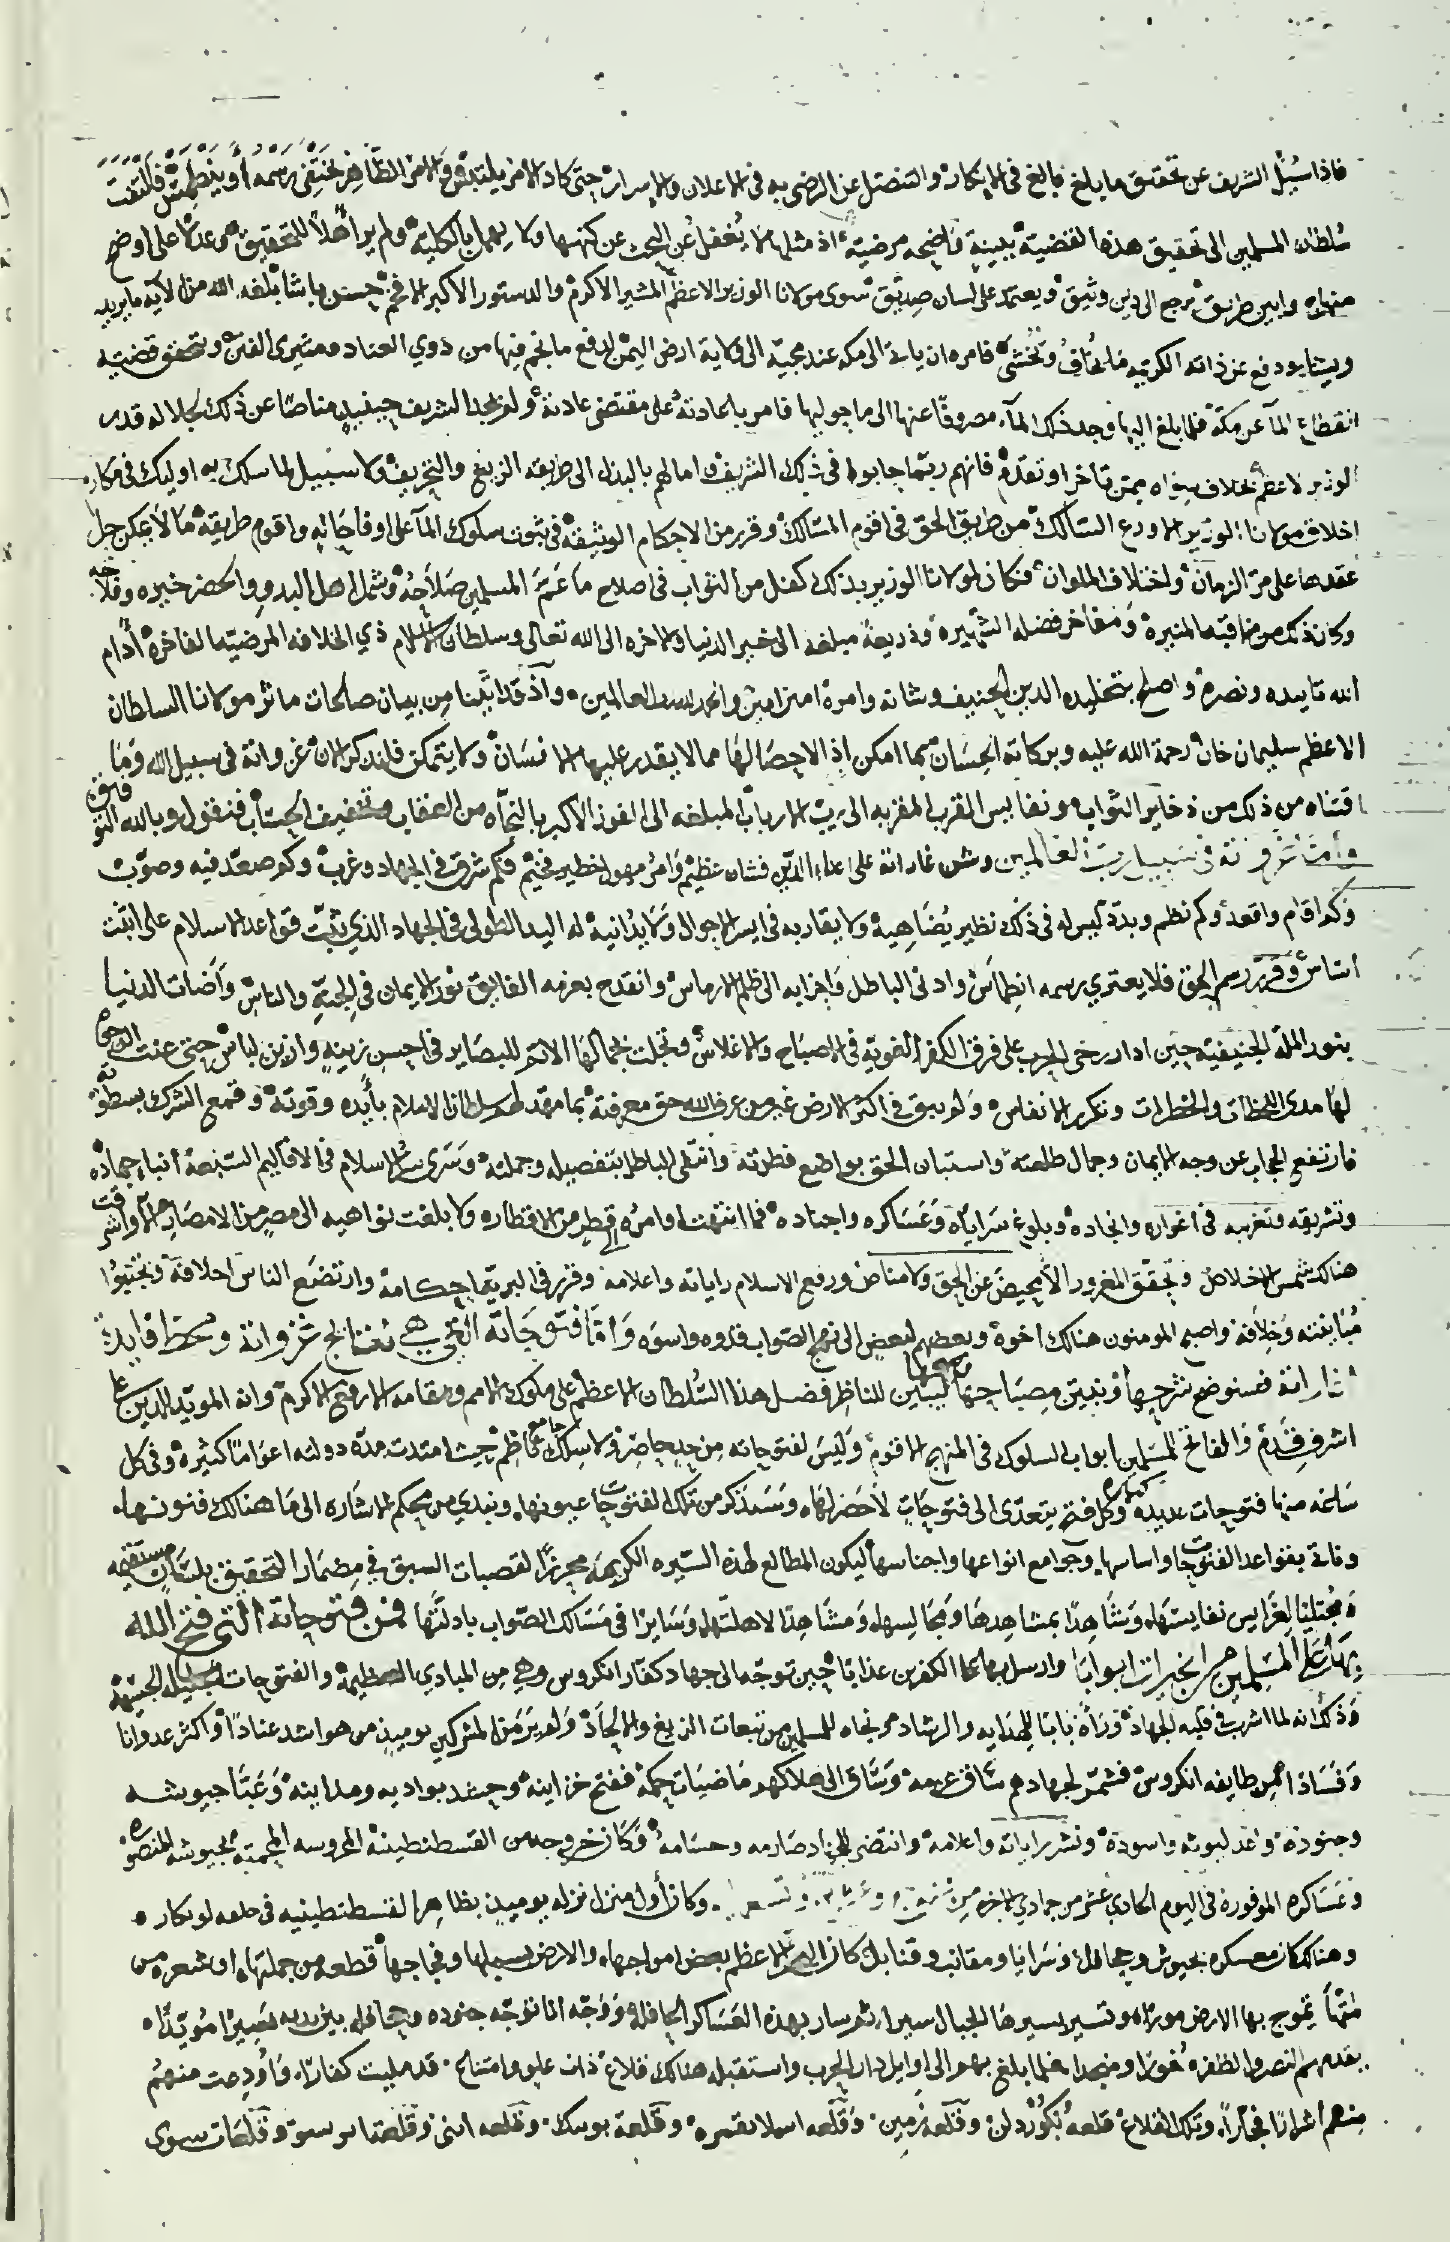 فاذا سُئل الشريف عن تحقيق ما بلغ بالغ في الانكار والتنصل عن الرضى به في الاعلان والاسرار حتى كاد الامر يلتبس والامر الظاهر يختفى رسمه أو ينطمس فالتفت
سلطان المسلمين الى تحقيق هذه القضية ببينة واضحه مرضية اذ مثلها لا يُغفل عن البحث عن كنهها ولا يهمل بالكلية ولم ير أهلاً للتحقيق وعدلا على اوضح
منهاج وابين طريق يرجع الى دين وثيق ويعتمد على لسان صديق سوى مولانا الوزير الاعظم المشير الاكرم والدستور الاكبر الافخم حسن باشا بلغه الله من الآيه ما يريد
ويشا ودفع عن ذاته الكريمه ما يُخاف ويخشى فامره ان ياتي الى مكه عند مجيه الى ولاية ارض اليمن لدفع ما نجم فيها من ذوي العناد ومثيرى الفتن وتحقق قضيه
انقطاع الما عن مكة فلما بلغ اليها وجد ذلك الما مصروفا عنها الى ما حوليها فامر باعادته على مقتضى عادته ولم يجد الشريف حينئذ مناصًا عن ذلك اجلالا لقدر
الوزير الاعظم بخلاف سواه ممن تأخر او تقدم فانهم ربما حابوا في ذلك الشريف وامالهم بالبذل الى طريقه الزيغ والتحريف ولا سبيل لما سلك به اوليك في مكارم
اخلاق مولانا الوزير الاورع السالك من طريق الحق في اقوم المسالك وقرر من الاحكام الوثيقة في ثبوت سلوك الما على اوضاحه واقوم طريقة ما لا يمكن حل
عقدها على مر الزمان واختلاف الملوان فكان لمولانا الوزير بذلك كفل من الثواب في اصلاح ما عَمّ المسلمين صلاحُه وشمل اهل البدو والحضر خيره وفلاحه
وكان ذلك من مناقبه المنيره ومفاخر فضله الشهيره وذريعة مبلغه الى خير الدنيا والاخره الى الله تعالى وسلطان الاسلام ذي الخلافه المرضية الفاخره أدام
الله تاييده ونصره واصلح بتخليده الدين الحنيف وشانه وامره امين امين والحمد لله رب العالمين واذ قد اتينا من بيان صالحات ماثر مولانا السلطان
الاعظم سليمان خان رحمة الله عليه وبركاته الحسان بما امكن اذ الاحصا لها مما لا يقدر عليها الانسان ولا يتمكن فلنذكر الان غزواته في سبيل الله وما
اقتناه من ذلك من ذخاير الثواب ونفايس القرب المقربه الى رب الارباب المبلغه الى الفوز الاكبر بالنجاه من العقاب وتخفيف الحساب فنقول وبالله التوفيق
وأمّا غزواته في سبيل رب العالمين وشن غاراته على اعداء الدين فشان عظيم وأمر مهول خطير فخيم فكم شرق في الجهاد وغرب وكم صعد فيه وصوب
وكم اقام واقعد وكم نظم وبدد ليس له في ذلك نظير يُضاهيه ولا يقاربه في ايسر الاحوال ولا يدانيه له اليد الطولى في الجهاد الذي ثبت قواعد الاسلام على اثبت
اساس وقرر رسم الحق فلا يعتري رسمه انطماس واد نى الباطل واحزابه الى ظلم الارماس وانقدح بعزمه الفايق نور الايمان في الجنة والناس وأضات الدنيا
بنور الملة الحنيفية حين ادار رحى الحرب على فرق الكفر الغوية في الاصباح والاغلاس وتجلت بجمالها الاتم للبصاير في احسن زينة وازين لباس حتى عنت الوجوه
لها مدى اللحظات والخطرات وتكرر الانفاس ولم يبق في اكثر الارض غير من عرف الله حق معرفته بما مهد له سلطان الاسلام بأيده وقوته وقمع الشرك بسطوته
فارتفع الحجاب عن وجه الايمان وجمال طلعته واستبان الحق بواضح فطرته وانتفى الباطل بتفصيله وجملته وسرى سر الاسلام في الاقاليم السبعة انباء جهاده
وتشريقه وتغريبه في اغواره وانجاده وبلوغ سراياه وعساكره واجناده فما انتهت اوامره الى قطر من الاقطار ولا بلغت نواهيه الى مصر من الامصار الا واشرقت
هنالك شمس الاخلاص وتحقق المغرور الا محيص عن الحق ولا مناص ورفع الاسلام راياته واعلامه وقرر في البرية احكامه وارتضع الناس اخلافه وتجنبوا
مُباينته وخلافه واصبح المومنون هنالك اخوة وبعضهم لبعض الى نهج الصواب قدوه واسوه وأما فتوحاته التي هي نتائج غزواته ومحط فايدة
غاراته فسنوضح شرحها ونبين مصباحها ليبين للناظر فضل هذا السلطان الاعظم على ملوك الامم ومقامه الارفع الاكرم وانه المويد للدين على
اشرف قدم والفاتح للمسلمين ابواب السلوك في المنهج الاقوم وليس لفتوحاته من حد حاصر ولا سلك جامع ناظم حيث امتدت مدة دولته اعوامًا كثيرة وفي كل
سلخه منها فتوحات عديده كبيره وكل فتح يتعدى الى فتوحات لا حصر لها وسنذكر من تلك الفتوحات عيونها ونبدي من محكم الاشاره الى ما هنالك فنونها
وناتي بقواعد الفتوحات واساسها وجوامع انواعها واجناسها ليكون المطالع لهذه السيره الكريمه محرزًا لقصبات السبق في مضمار التحقيق بلسان مستقيمه
ومجتليًا لعرايس نفايسها وشاهدًا بمشاهدها ومجالسها ومشاهدًا لاهلتها وسايرًا في مسالك الصواب بادلتها فمن فتوحاته التي فتح الله
بها على المسلمين من الخيرات ابوابا وارسل بها على الكافرين عذابا حين توجه الى جهاد كفار انكروس وهي من المبادي العظيمة والفتوحات الجليلة الجسيمة
وذلك انه لما اشرب في قلبه الجهاد ورآه بابًا للهدايه والرشاد ونجاه للمسلمين من تبعات الزيغ والالحاد ولم ير من المشركين يوميذ من هو اشد عنادًا واكثر عدوانا
وفسادا من طايفه انكروس فشمر لجهادهم ساق عزمه وساق الى هلاكهم ماضيات حكمه ففتح خزاينه وحشد بواديه ومداينه وعبّا جيوشه
وجنوده واعد ليوثه واسوده ونشر راياته واعلامه وانتضى للجهاد صارمه وحسامه وكان خروجه من القسطنطينة المحروسه المحمية بجيوشه المنصوره
وعساكره الموفوره في اليوم الحادي عشر من جمادي الاخره من وكان أول منزل نزله يوميذ بظاهر القسطنطينيه في حلقه لوبكار
وهنالك كان معسكره بجيوش وجحافل وسرايا ومقانب وقنابل كان البحر الاعظم بعض امواجها والارض سهلها وفجاجها قطعه من جملتها او شعره من
متنها تموج بها الارض مورًا وتسير بسيرها الجبال سيرا ثم سار بهذه العساكر الحافله ووجّه انا توجّه جنوده وجحافله بين يديه نصيرًا مويدًا
يقدمهم النصر والظفر غورًا ومنجدا فلما بلغ بهم الى اوايل دار الحرب واستقبله هنالك قلاع ذات علو وامتناع قد مليت كفارًا واُودعت منهم
منهم اشرارًا فجّارًا وتلك القلاع قلعة بكوردلن وقلعه زمين وقلعه اسلانقمره وقلعة بوسك وقلعه اينى وقلعتا برسو وقلعات سوى